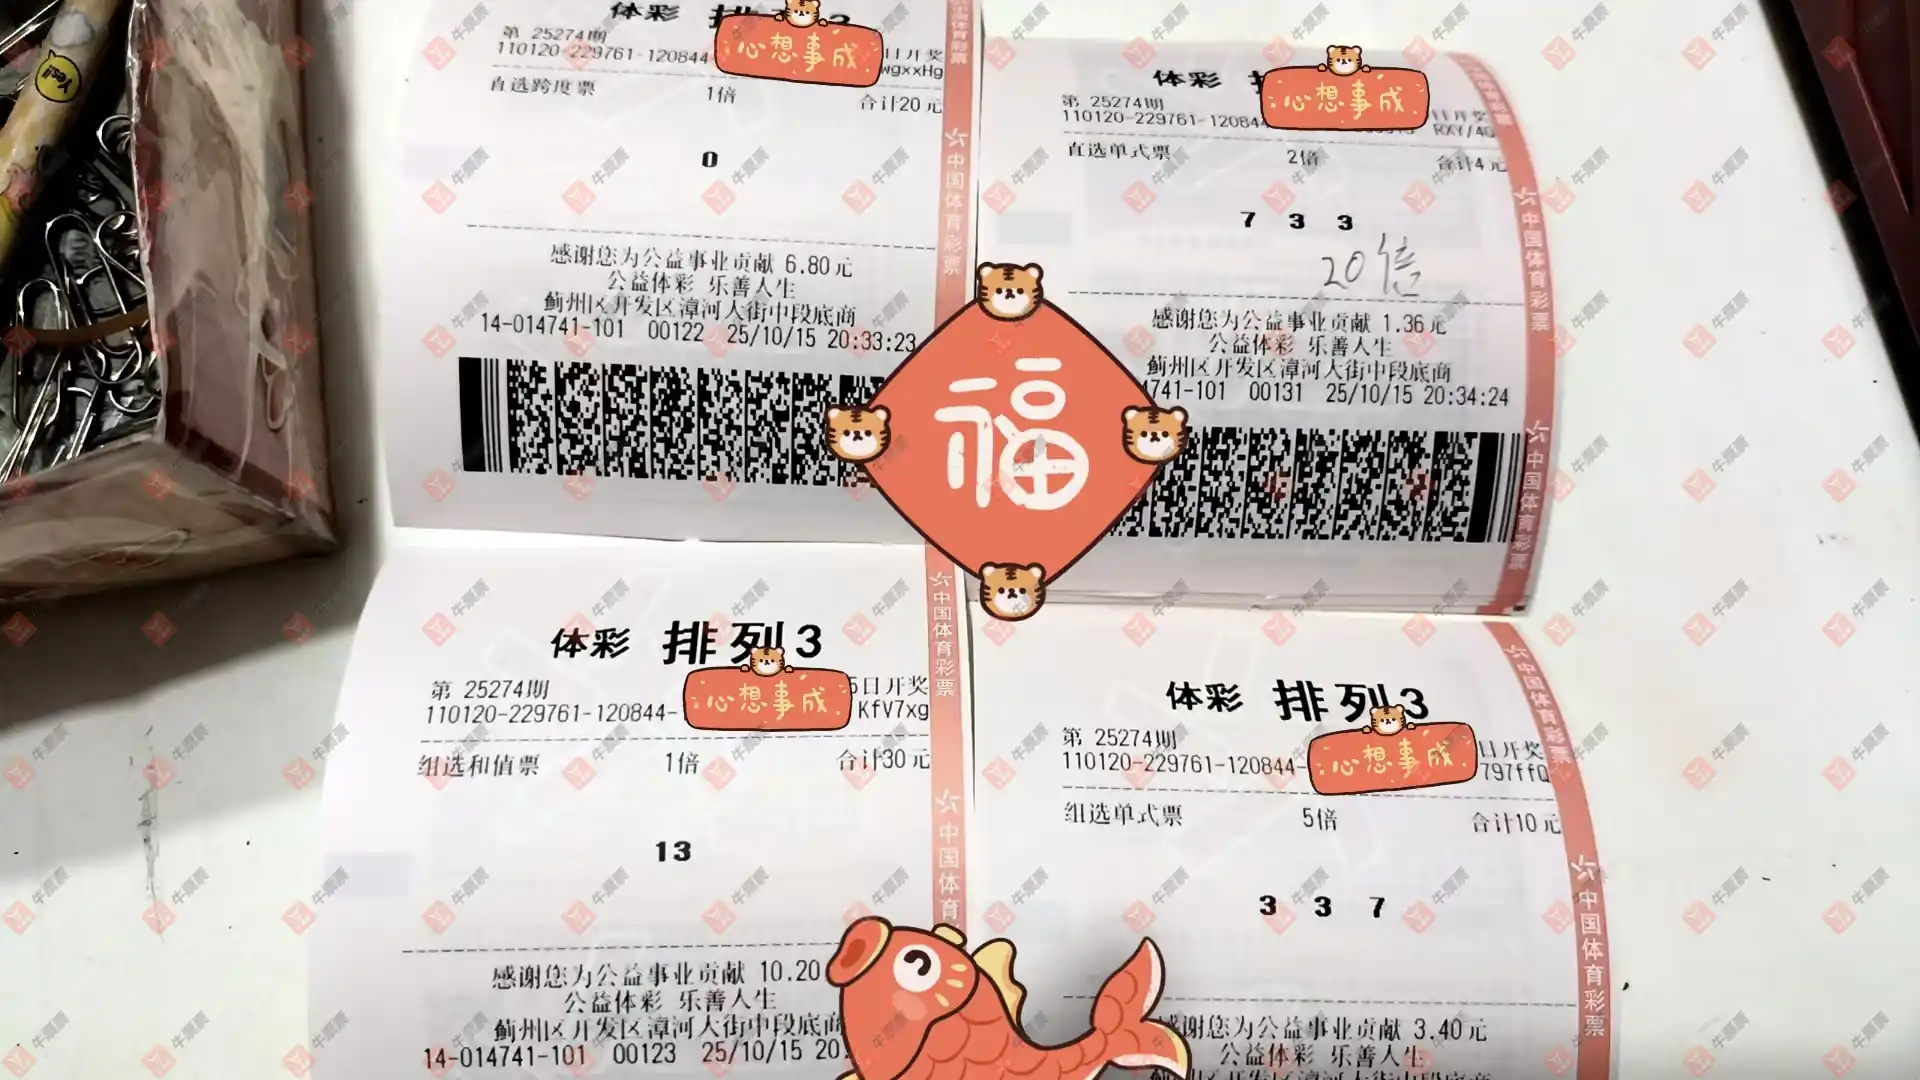 Yes!!
体彩 排列3
第 25274期
日开奖
110120-229761-120844
wgxxHg
心想事成
直选跨度票 1倍 合计20元
0
感谢您为公益事业贡献 6.80元
公益体彩 乐善人生
蓟州区开发区漳河大街中段底商
14-014741-101 00122 25/10/15 20:33:23
中国体育彩票
体彩
心想事成
第 25274期
日开奖
110120-229761-120844
RXY/4Q
直选单式票 2倍 合计4元
7 3 3
20倍
感谢您为公益事业贡献 1.36元
公益体彩 乐善人生
蓟州区开发区漳河大街中段底商
741-101 00131 25/10/15 20:34:24
中国体育彩票
中国体育彩票
福
体彩 排列3
第 25274期
5日开奖
110120-229761-120844-
KfV7xg
心想事成
组选和值票 1倍 合计30元
13
感谢您为公益事业贡献 10.20
公益体彩 乐善人生
蓟州区开发区漳河大街中段底商
14-014741-101 00123 25/10/15 20:
中国体育彩票
中国体育
体彩 排列3
第 25274期
日开奖
110120-229761-120844-
797ffQ
心想事成
组选单式票 5倍 合计10元
3 3 7
感谢您为公益事业贡献 3.40元
公益体彩 乐善人生
蓟州区开发区漳河大街中段底商
中国体育彩票
中国体育彩票